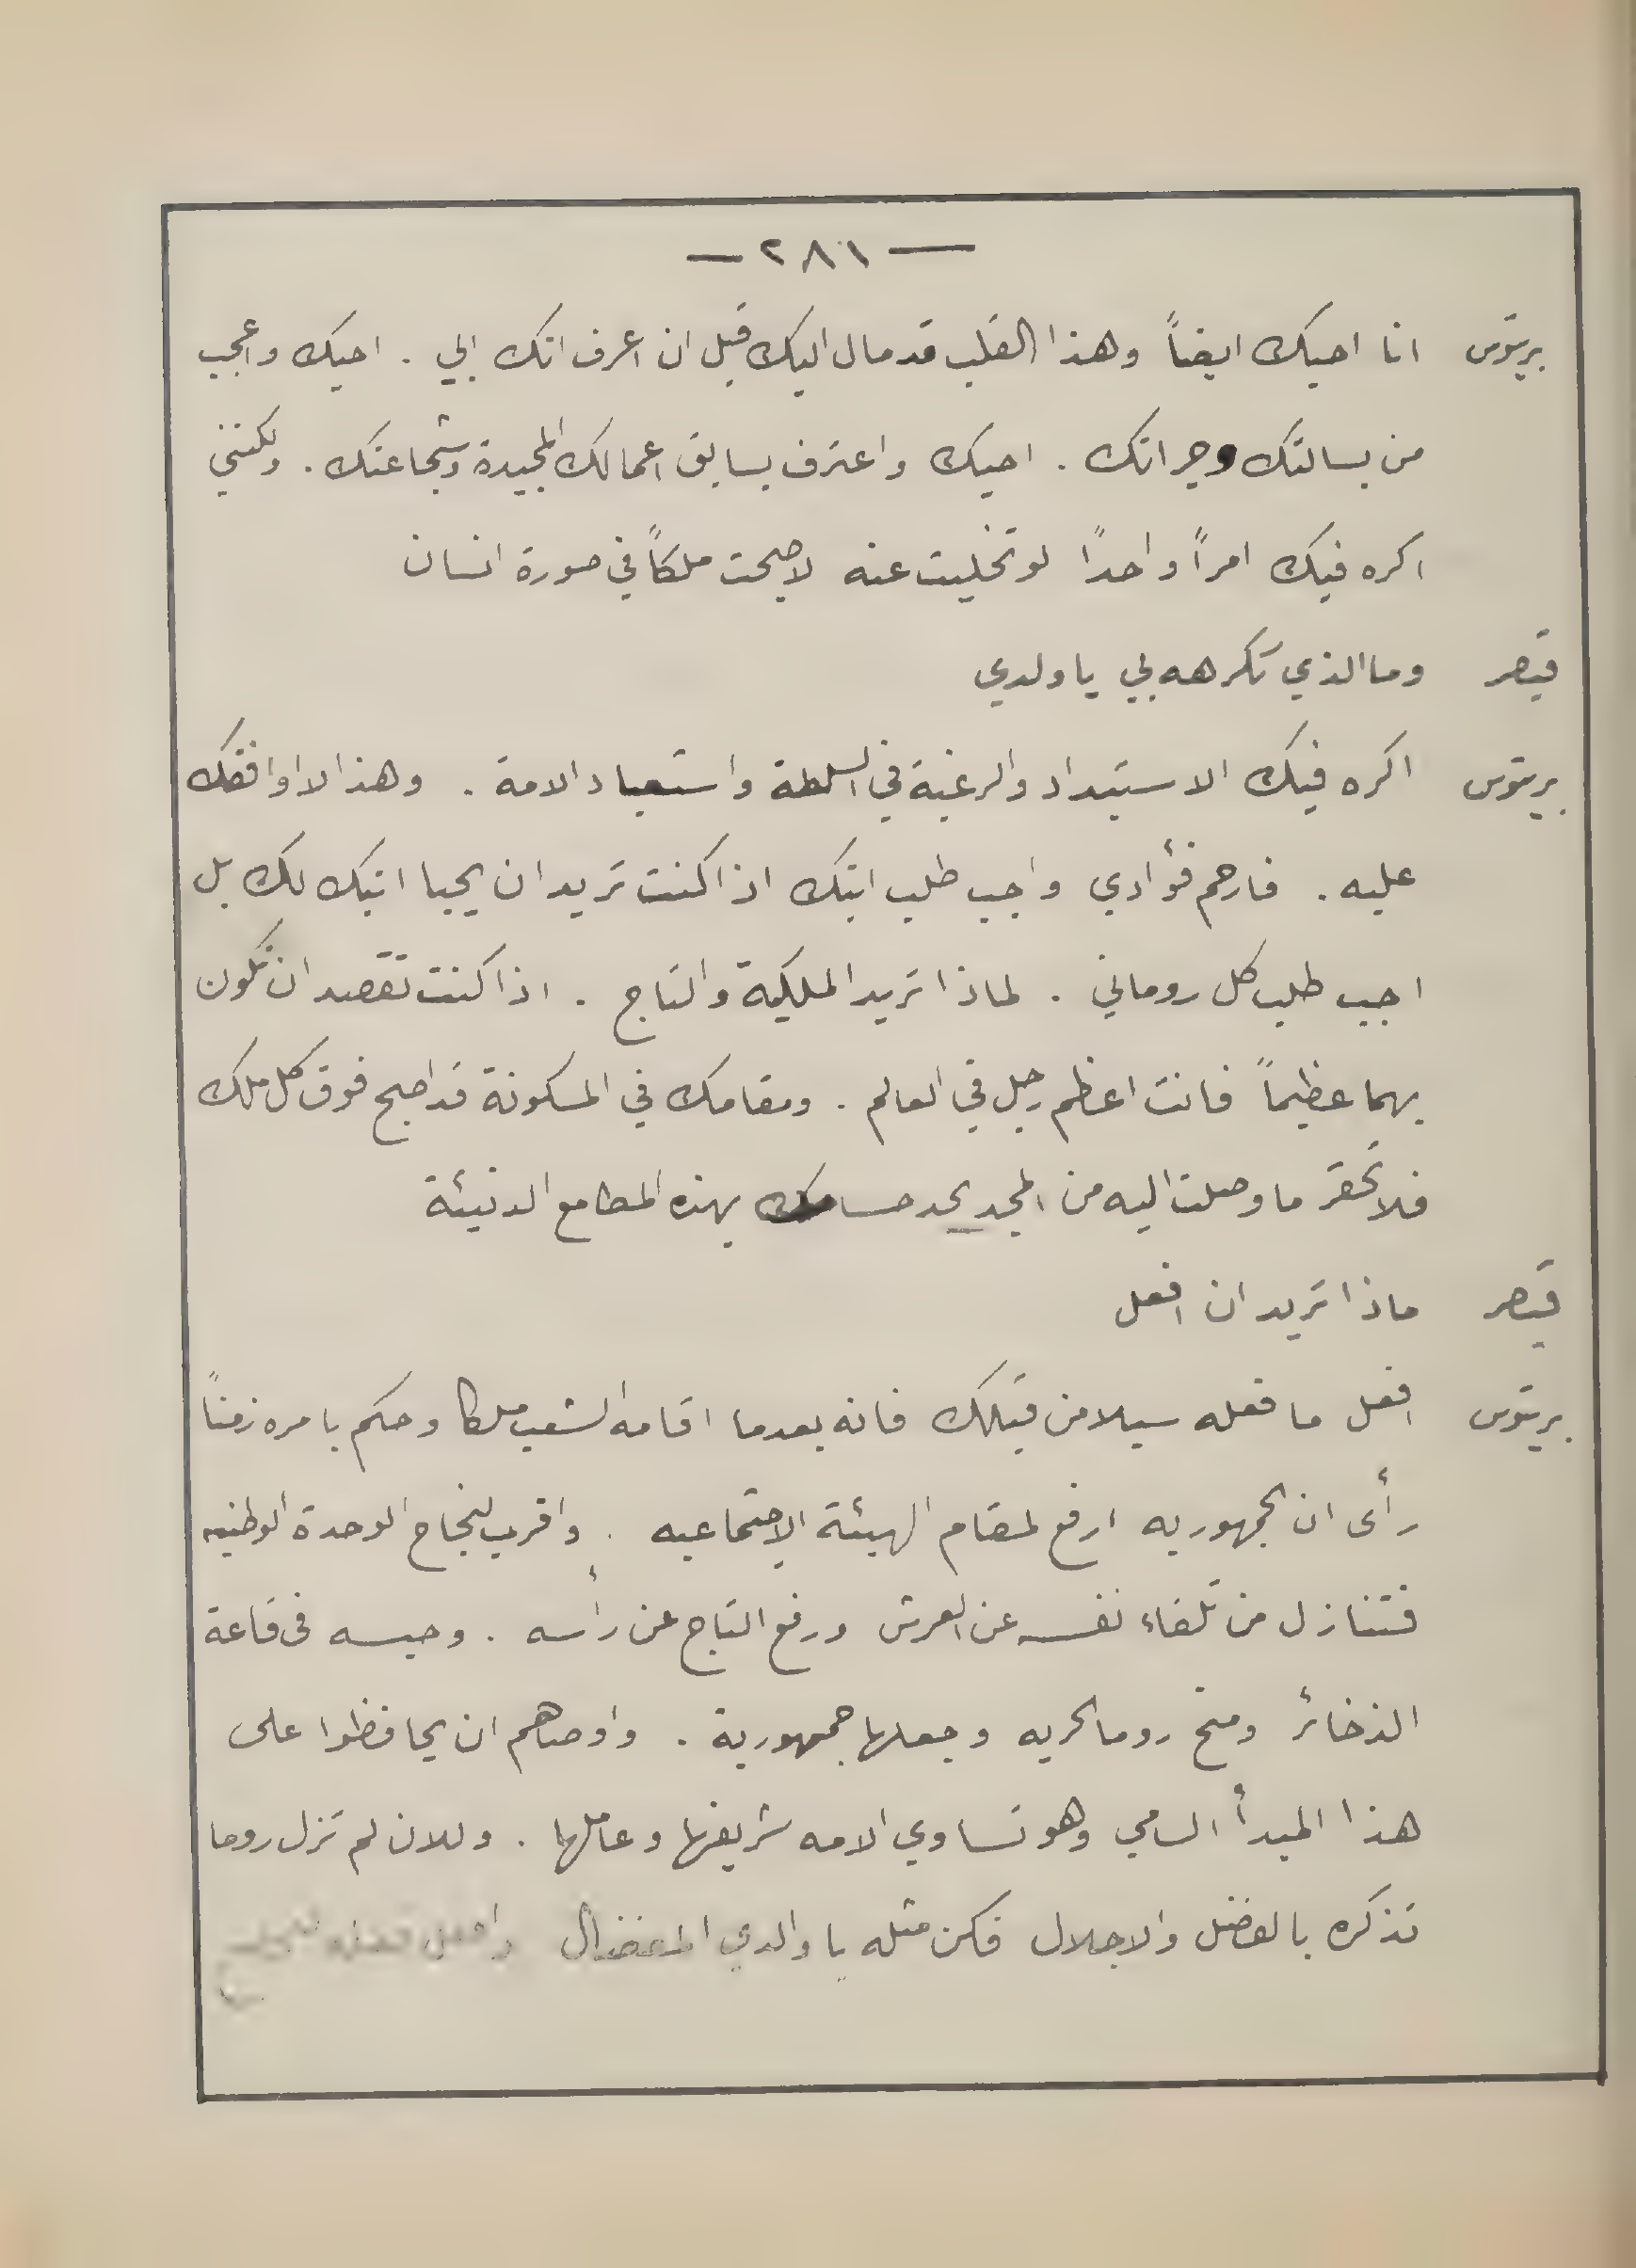 — ٢٨١ —
بريتوس انا احبك ايضاً وهذا القلب قد مال اليك قبل ان اعرف انك ابي . احبك واعجب
من بسالتك وجراتك . احبك واعترف بسابق اعمالك المجيدة وشجاعتك . ولكنني
اكره فيك امراً واحداً لو تخليت عنه لاصبحت ملكاً في صورة انسان
قيصر وما الذي تكرهه بي يا ولدي
بريتوس اكره فيك الاستبداد والرغبة في السلطة واستعباد الامة . وهذا لا اوافقك
عليه . فارحم فؤادي واجب طلب ابنك اذا كنت تريد ان يحيا ابنك لك بل
اجب طلب كل روماني . لماذا تريد الملكية والتاج . اذا كنت تقصد ان تكون
بهما عظيماً فانت اعظم رجل في العالم . ومقامك في المسكونة قد اصبح فوق كل ملك
فلا تحقر ما وصلت اليه من المجد بحد حسامك بهذه المطامع الدنيئة
قيصر ماذا تريد ان افعل
بريتوس افعل ما فعله سيلا من قبلك فانه بعدما اقامه الشعب ملكا وحكم بامره زمناً
رأى ان الجمهوريه ارفع لمقام الهيئة الاجتماعيه . واقرب لنجاح الوحدة الوطنيه
فتنازل من تلقاء نفسه عن العرش ورفع التاج عن رأسه . وحبسه فى قاعة
الذخائر ومنح روما الحريه وجعلها جمهورية . واوصاهم ان يحافظوا على
هذا المبدأ السامي وهو تساوي الامه شريفها وعاملها . وللان لم تزل روما
تذكره بالفضل والاجلال فكن مثله يا والدي المفضال وافعل فعله